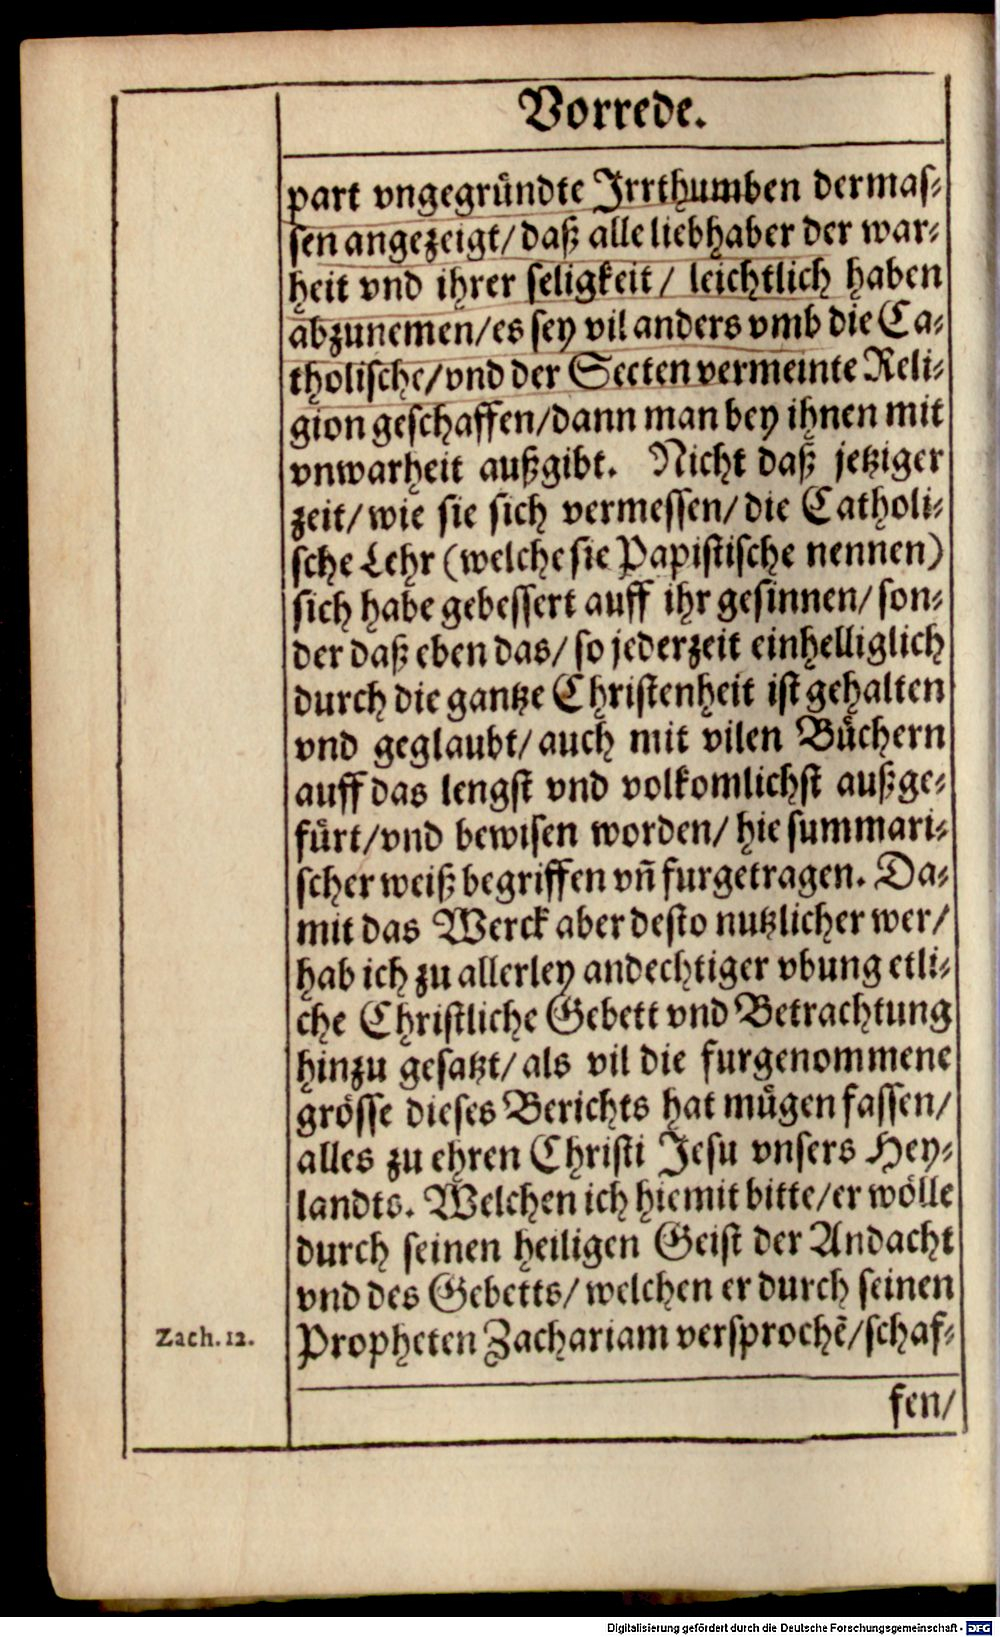 Vorrede.
part vngegründte Irrthumben dermas-
sen angezeigt/ daß alle liebhaber der war-
heit vnd ihrer seligkeit/ leichtlich haben
abzunemen/ es sey vil anders vmb die Ca-
tholische/ vnd der Secten vermeinte Reli-
gion geschaffen/ dann man bey ihnen mit
vnwarheit außgibt. Nicht daß jetziger
zeit/ wie sie sich vermessen/ die Catholi-
sche Lehr (welche sie Papistische nennen)
sich habe gebessert auff ihr gesinnen/ son-
der daß eben das/ so jederzeit einhelliglich
durch die gantze Christenheit ist gehalten
vnd geglaubt/ auch mit vilen Büchern
auff das lengst vnd volkomlichst außge-
fürt/ vnd bewisen worden/ hie summari-
scher weiß begriffen vñ furgetragen. Da-
mit das Werck aber desto nutzlicher wer/
hab ich zu allerley andechtiger vbung etli-
che Christliche Gebett vnd Betrachtung
hinzu gesatzt/ als vil die furgenommene
grösse dieses Berichts hat mügen fassen/
alles zu ehren Christi Jesu vnsers Hey-
landts. Welchen ich hiemit bitte/ er wölle
durch seinen heiligen Geist der Andacht
vnd des Gebetts/ welchen er durch seinen
Zach. 12.
Propheten Zachariam versprochẽ/ schaf-
fen/
Digitalisierung gefördert durch die Deutsche Forschungsgemeinschaft - DFG